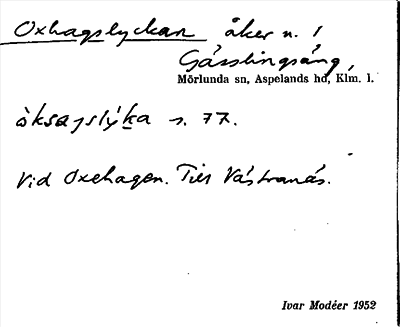 Oxhagslyckan åker n. 1
Gässlingsäng,
Mörlunda sn, Aspelands hd, Klm. l.
s. 77.
Vid Oxehagen. Till Västranäs.
Ivar Modéer 1952